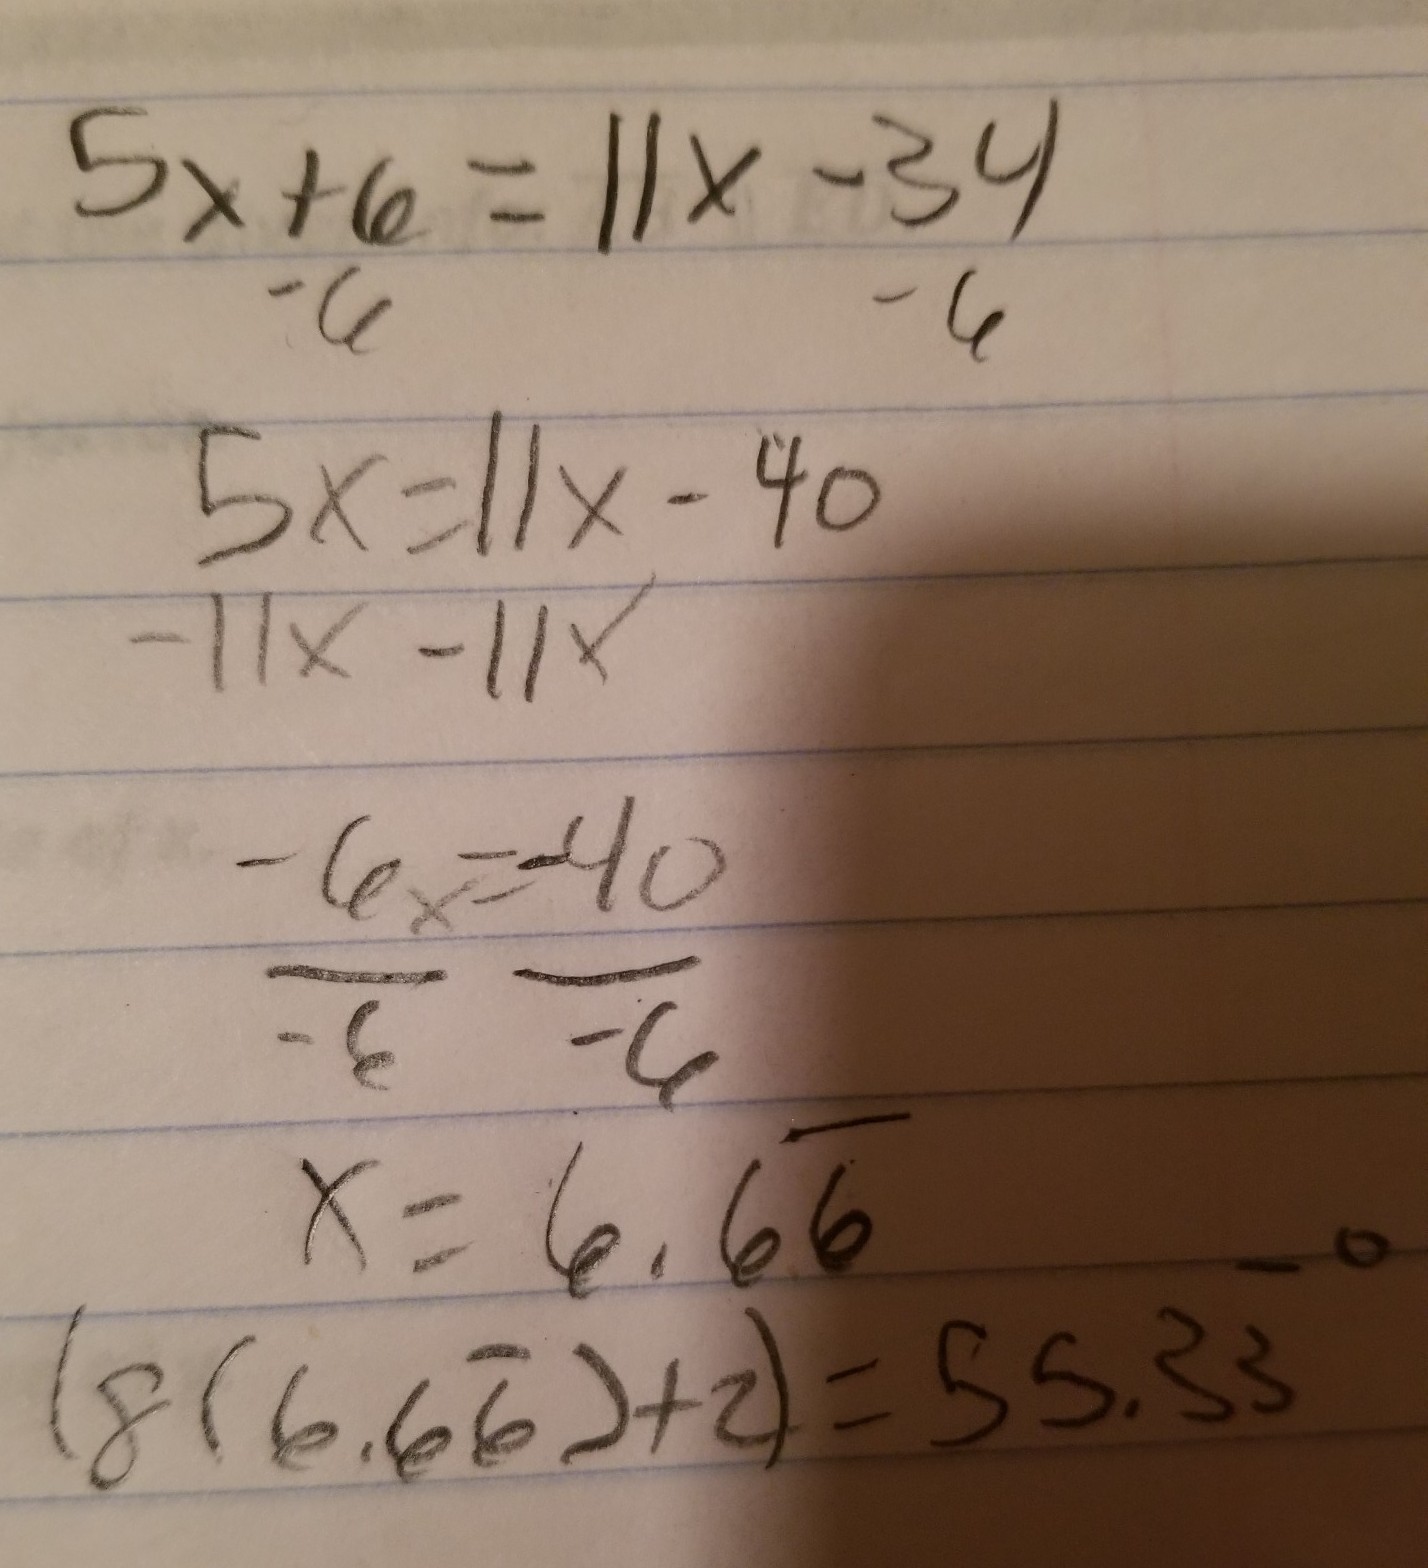 5x+6=11x-34
-6 -6
5x=11x-40
-11x -11x
-6x=-40
-6 -6
x=6.66̅
(8(6.66̅)+2)=55.33̅°